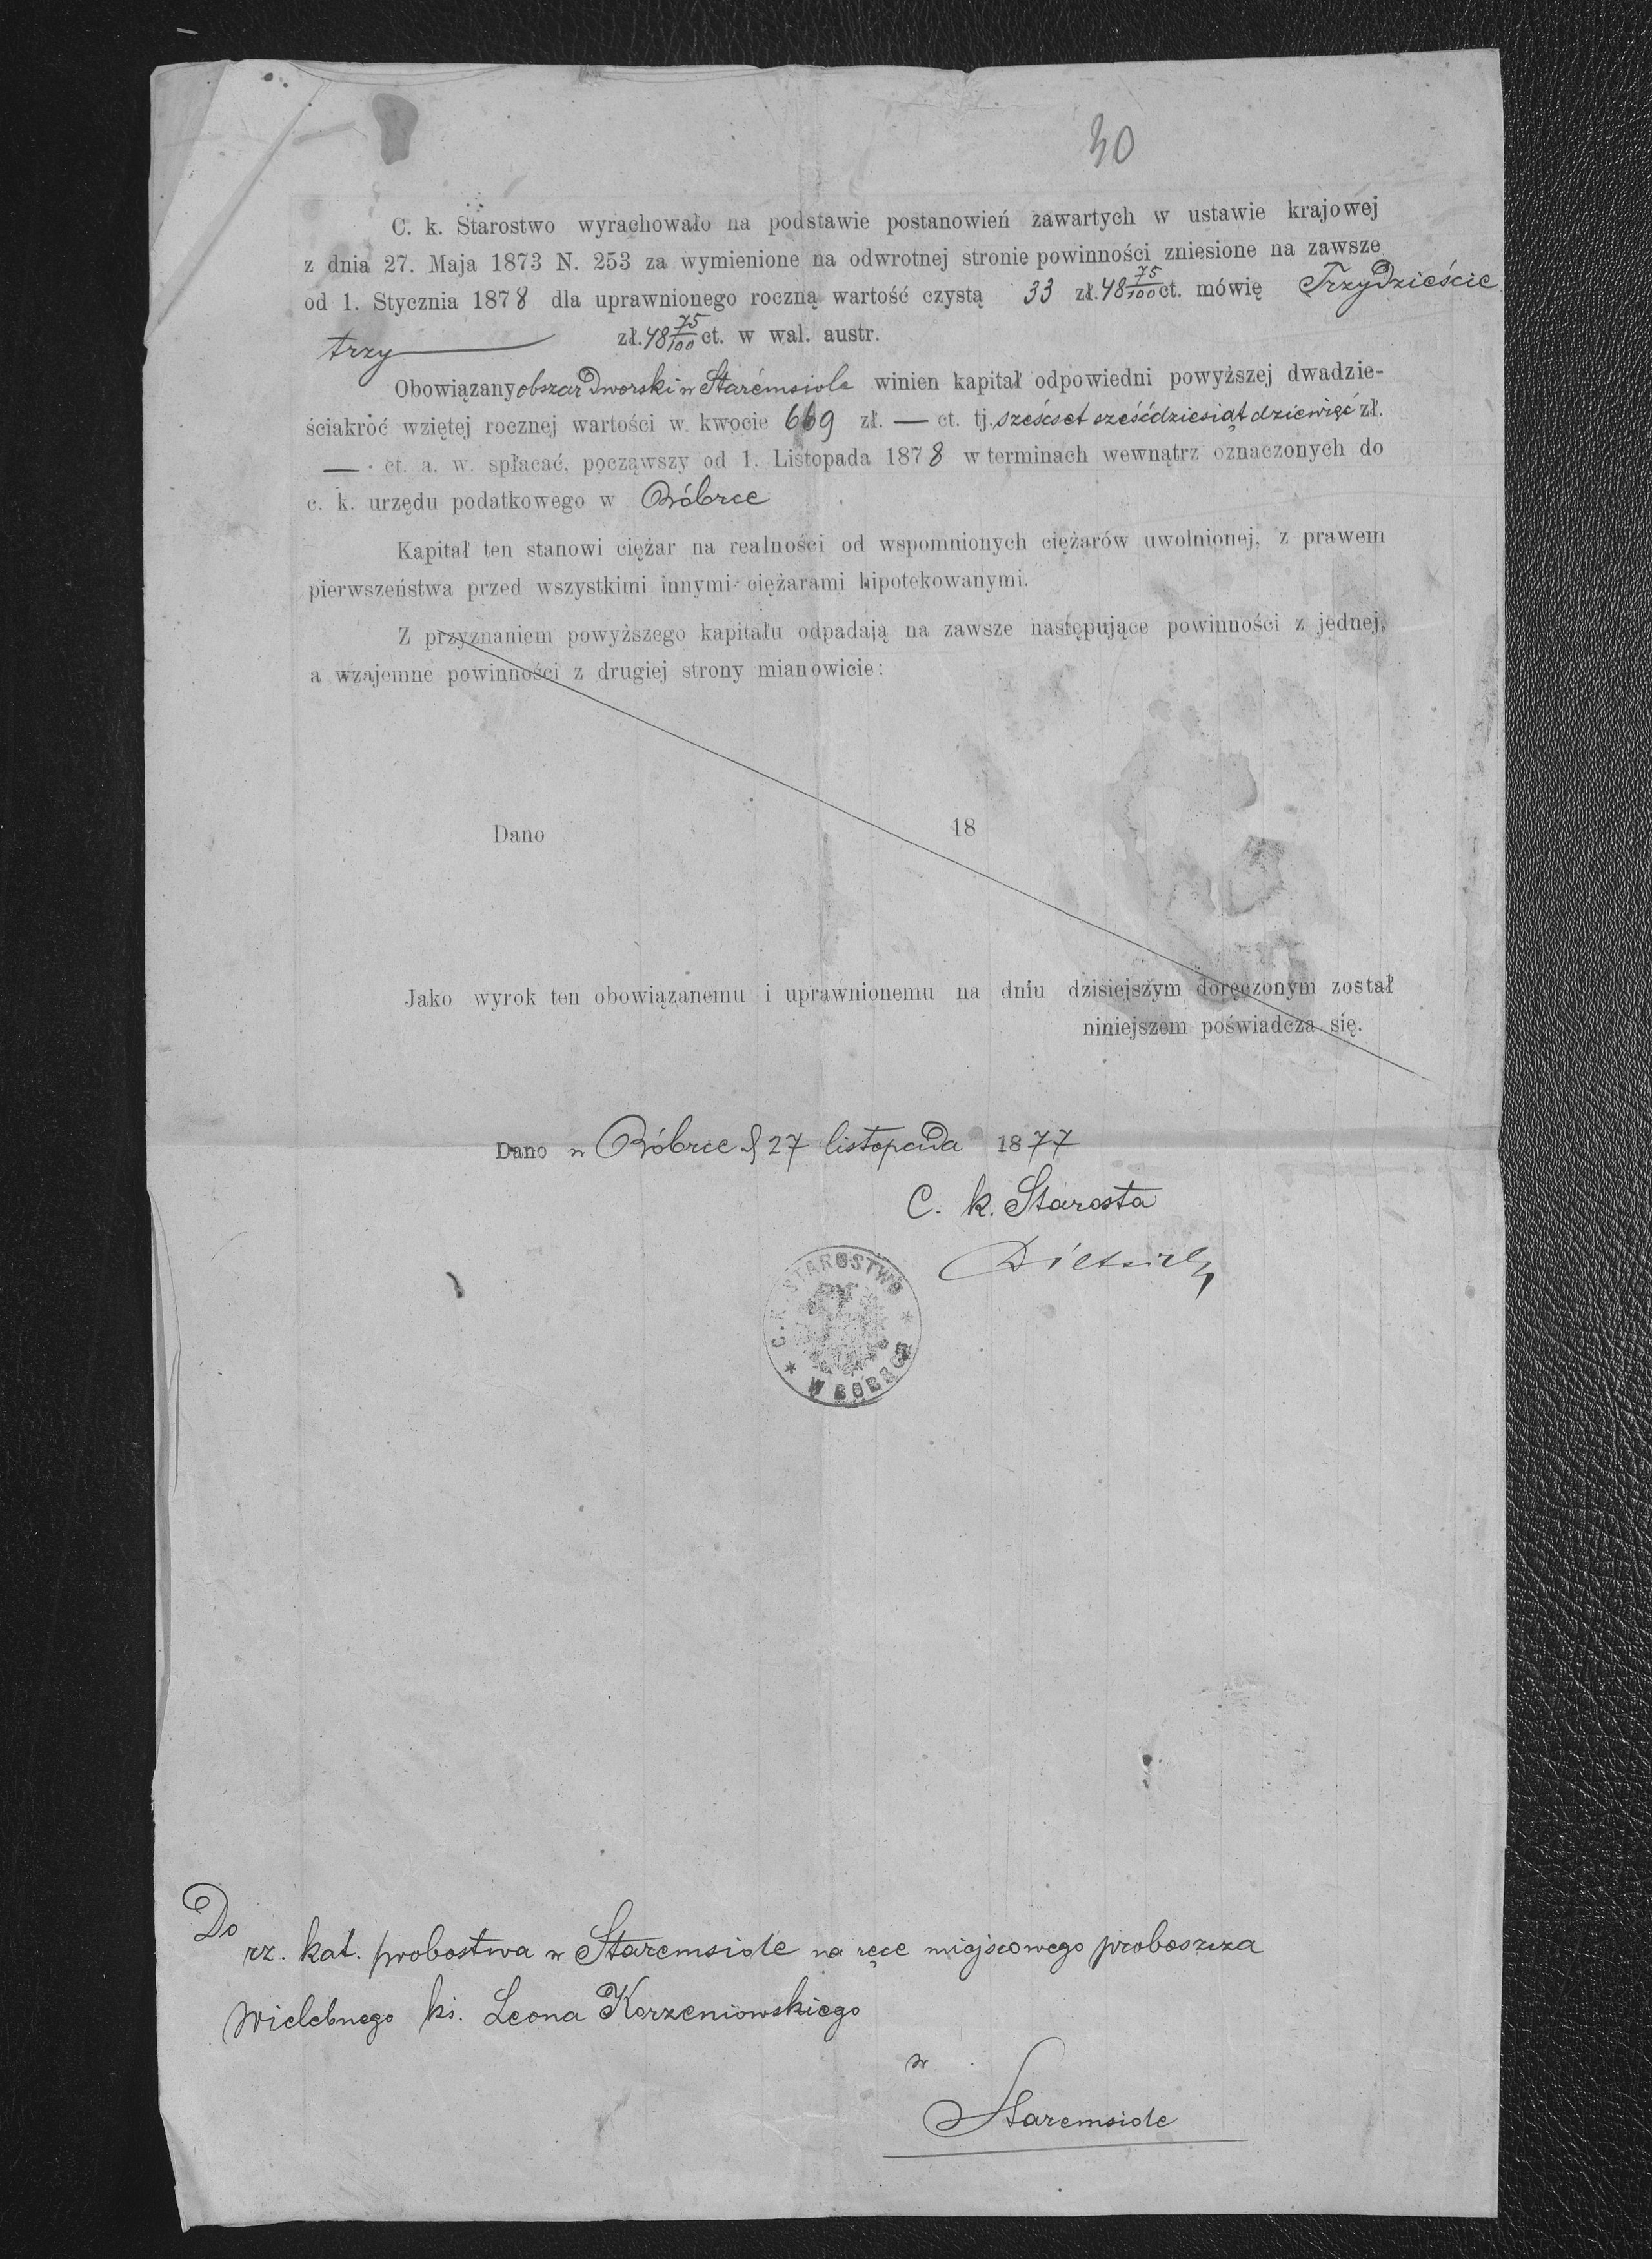 30
C. k. Starostwo wyrachowało na podstawie postanowień zawartych w ustawie krajowej
z dnia 27. Maja 1873 N. 253 za wymienione na odwrotnej stronie powinności zniesione na zawsze
od 1. Stycznia 1878 dla uprawnionego roczną wartość czystą 33 zł. 48 75/100 ct. mówię Trzydzieście
trzy zł. 48 75/100 ct. w wal. austr.
Obowiązany obszar dworski w Starémsiole winien kapitał odpowiedni powyższej dwadzie-
ściakróć wziętej rocznej wartości w kwocie 669 zł. — ct. tj. sześcset sześćdziesiąt dziewięć zł.
— ct. a. w. spłacać, począwszy od 1. Listopada 1878 w terminach wewnątrz oznaczonych do
c. k. urzędu podatkowego w Bóbrce
Kapitał ten stanowi ciężar na realności od wspomnionych ciężarów uwolnionej, z prawem
pierwszeństwa przed wszystkimi innymi ciężarami hipotekowanymi.
Z przyznaniem powyższego kapitału odpadają na zawsze następujące powinności z jednej,
a wzajemne powinności z drugiej strony mianowicie:
Dano 18
Jako wyrok ten obowiązanemu i uprawnionemu na dniu dzisiejszym doręczonym został
niniejszem poświadcza się.
Dano w Bóbrce d 27 listopada 1877
C. k. Starosta
C. K. STAROSTWO
W BÓBRCE
Do
rz. kat. probostwa w Staremsiole na ręce miejscowego proboszcza
Wielebnego ks. Leona Korzeniowskiego
w
Staremsiole